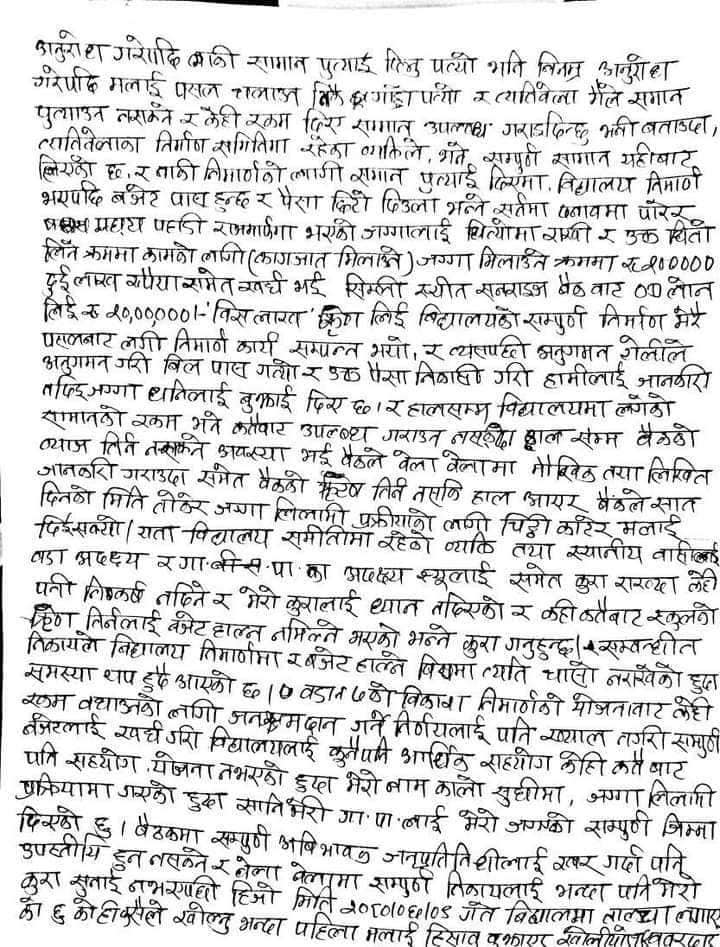 अनुरोध गरेपछि बाकी सामान पुर्‍याई दिनु पर्‍यो भनि विनम्र अनुरोध
गरेपछि मलाई पसल चलाउन निकै गाह्रो पर्‍यो र त्यतिवेला मैले समान
पुर्‍याउन नसक्ने र केही रकम दिए सामान उपलब्ध गराइदिन्छु भनी बताउदा,
त्यतिवेलाका निर्माण समितिमा रहेका व्यक्तिले, भने सम्पुर्ण सामान यहीबाट
लिएको छ, र बाकी निर्माणको लागी समान पुर्‍याई दिएमा, विद्यालय निर्माण
भएपछि बजेट पास हुन्छ र पैसा छिटो दिउला भन्ने सर्तमा दवावमा पारेर
पहाडी राजमार्गमा भएको जग्गालाई धितोमा राखी र उक्त धितो
लिने क्रममा कामको लागी (कागजात मिलाउने) जग्गा मिलाउने क्रममा रु २०००००
दुई लाख रुपैया समेत खर्च भई सिम्ली स्थीत सनराइज बैंक बाट OD लोन
लिई रु २०,००,०००।- 'विस लाख' ऋण लिई विद्यालयको सम्पुर्ण निर्माण मेरै
पसलबाट लगी निर्माण कार्य सम्पन्न भयो, र त्यसपछी अनुगमन टोलीले
अनुगमन गरी बिल पास गर्‍यो र उक्त पैसा निकासी गरी हामीलाई जानकारी
नदिई जग्गा धनिलाई बुझाई दिए छ। र हालसम्म विद्यालयमा लगेको
सामानको रकम भने कतैबाट उपलब्ध गराउन नसक्दा हाल सम्म बैंकको
व्याज तिर्न नसक्ने अवस्था भई बैंकले वेला वेलामा मौखिक तथा लिखित
जानकारी गराउदा समेत बैंकको ऋण तिर्न नसकि हाल आएर बैंकले सात
दिनको मिति तोकेर जग्गा लिलामी प्रक्रीयाको लागी चिठ्ठी काटेर मलाई
दिईसक्यो। यता विद्यालय समीतीमा रहेको व्यक्ति तथा स्थानीय वासीलाई
वडा अध्यक्ष र गा.वी.स. पा. का अध्यक्ष ज्यूलाई समेत कुरा राख्दा केही
पनी निष्कर्ष नदिने र मेरो कुरालाई ध्यान नदिएको र कही कतैबाट स्कुलको
ऋण तिर्नलाई बजेट हाल्न नमिल्ने भएको भन्ने कुरा गर्नुहुन्छ। सम्वन्धीत
निकायले विद्यालय निर्माणमा र बजेट हाल्ने विषयमा त्यति चासो नराखेको हुदा
समस्या थप हुदै आएको छ। वडा नं ७ को विकास निर्माणको योजनाबाट केही
रकम वचाउनको लागी जनश्रमदान गर्ने निर्णयलाई पनि ख्याल नगरी सम्पुर्ण
बजेटलाई खर्च गरी विद्यालयलाई कुनैपनि आर्थिक सहयोग कोही कतैबाट
पनि सहयोग, योजना नभएको हुदा मेरो नाम कालो सुचीमा, जग्गा लिलामी
प्रक्रियामा गएको हुदा सानिभेरी गा. पा. लाई मेरो जग्गाको सम्पुर्ण जिम्मा
दिएको छु। बैठकमा सम्पुर्ण अविभावक जनप्रतिनिधीलाई खबर गर्दा पनि
उपस्तीथि हुन नसक्ने र वेला वेलामा सम्पुर्ण निकायलाई भन्दा पनि मेरो
कुरा सुनाई नभएपछी हिजो मिति २०८०।०६।०८ गते विद्यालमा ताल्चा लगाए
को छु कोही कसैले खोल्नु भन्दा पहिला मलाई हिसाव